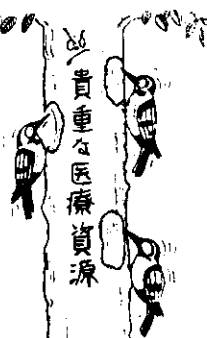 貴重な医療資源